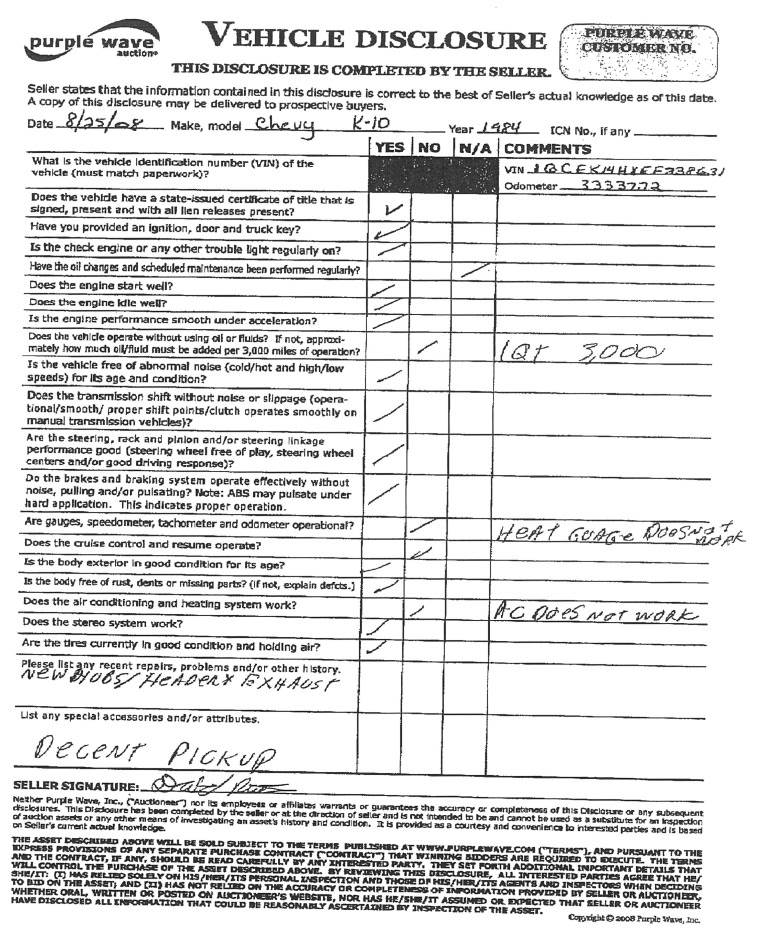 purple wave
auction
VEHICLE DISCLOSURE
PURPLE WAVE
CUSTOMER NO.
THIS DISCLOSURE IS COMPLETED BY THE SELLER.
Seller states that the information contained in this disclosure is correct to the best of Seller's actual knowledge as of this date.
A copy of this disclosure may be delivered to prospective buyers.
Date 8/25/08 Make, model Chevy K-10 Year 1984 ICN No., if any
YES NO N/A COMMENTS
What is the vehicle identification number (VIN) of the
vehicle (must match paperwork)?
VIN
Odometer 3333772
Does the vehicle have a state-issued certificate of title that is
signed, present and with all lien releases present?
Have you provided an ignition, door and truck key?
Is the check engine or any other trouble light regularly on?
Have the oil changes and scheduled maintenance been performed regularly?
Does the engine start well?
Does the engine idle well?
Is the engine performance smooth under acceleration?
Does the vehicle operate without using oil or fluids? If not, approxi-
mately how much oil/fluid must be added per 3,000 miles of operation?
1QT 3,000
Is the vehicle free of abnormal noise (cold/hot and high/low
speeds) for its age and condition?
Does the transmission shift without noise or slippage (opera-
tional/smooth/ proper shift points/clutch operates smoothly on
manual transmission vehicles)?
Are the steering, rack and pinion and/or steering linkage
performance good (steering wheel free of play, steering wheel
centers and/or good driving response)?
Do the brakes and braking system operate effectively without
noise, pulling and/or pulsating? Note: ABS may pulsate under
hard application. This indicates proper operation.
Are gauges, speedometer, tachometer and odometer operational?
HEAT GUAGE DOES NOT
WORK
Does the cruise control and resume operate?
Is the body exterior in good condition for its age?
Is the body free of rust, dents or missing parts? (if not, explain defcts.)
Does the air conditioning and heating system work?
AC DOES NOT WORK
Does the stereo system work?
Are the tires currently in good condition and holding air?
Please list any recent repairs, problems and/or other history.
NEW HUBS/ HEADERX EXHAUST
List any special accessories and/or attributes.
DECENT PICKUP
SELLER SIGNATURE:
Neither Purple Wave, Inc., ("Auctioneer") nor its employees or affiliates warrants or guarantees the accuracy or completeness of this Disclosure or any subsequent
disclosures. This Disclosure has been completed by the seller or at the direction of seller and is not intended to be and cannot be used as a substitute for an inspection
of auction assets or any other means of investigating an asset's history and condition. It is provided as a courtesy and convenience to interested parties and is based
on Seller's current actual knowledge.
THE ASSET DESCRIBED ABOVE WILL BE SOLD SUBJECT TO THE TERMS PUBLISHED AT WWW.PURPLEWAVE.COM ("TERMS"), AND PURSUANT TO THE
EXPRESS PROVISIONS OF ANY SEPARATE PURCHASE CONTRACT ("CONTRACT") THAT WINNING BIDDERS ARE REQUIRED TO EXECUTE. THE TERMS
AND THE CONTRACT, IF ANY, SHOULD BE READ CAREFULLY BY ANY INTERESTED PARTY. THEY SET FORTH ADDITIONAL IMPORTANT DETAILS THAT
WILL CONTROL THE PURCHASE OF THE ASSET DESCRIBED ABOVE. BY REVIEWING THIS DISCLOSURE, ALL INTERESTED PARTIES AGREE THAT HE/
SHE/IT: (I) HAS RELIED SOLELY ON HIS/HER/ITS PERSONAL INSPECTION AND THOSE OF HIS/HER/ITS AGENTS AND INSPECTORS WHEN DECIDING
TO BID ON THE ASSET; AND (II) HAS NOT RELIED ON THE ACCURACY OR COMPLETENESS OF INFORMATION PROVIDED BY SELLER OR AUCTIONEER,
WHETHER ORAL, WRITTEN OR POSTED ON AUCTIONEER'S WEBSITE, NOR HAS HE/SHE/IT ASSUMED OR EXPECTED THAT SELLER OR AUCTIONEER
HAVE DISCLOSED ALL INFORMATION THAT COULD BE REASONABLY ASCERTAINED BY INSPECTION OF THE ASSET.
Copyright © 2008 Purple Wave, Inc.